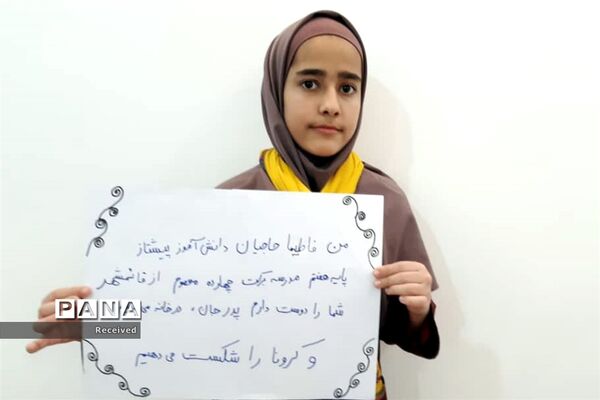 من فاطیما حاجیان دانش آموز پیشتاز
پایه هفتم مدرسه برکت چهارده معصوم از قائمشهر
شما را دوست دارم پدر جان، در خانه
و کرونا را شکست می دهیم
PANA
Received